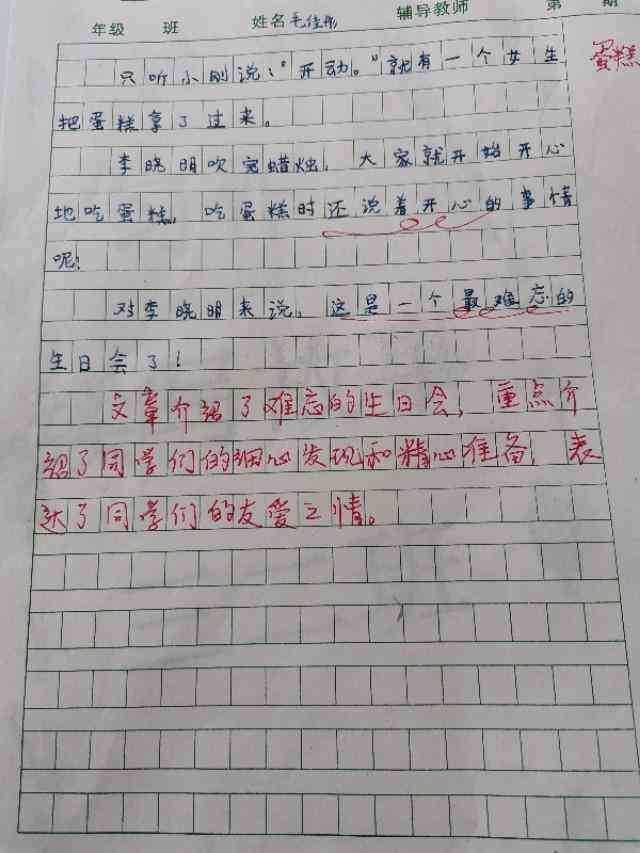 年级 班 姓名毛佳彤 辅导教师 第 期
只听小刚说:“开动。”就有一个女生
蛋糕
把蛋糕拿了过来。
李晓明吹完蜡烛,大家就开始开心
地吃蛋糕,吃蛋糕时还说着开心的事情
呢!
对李晓明来说,这是一个最难忘的
生日会了!
文章介绍了难忘的生日会,重点介
绍了同学们的细心发现和精心准备,表
达了同学们的友爱之情。